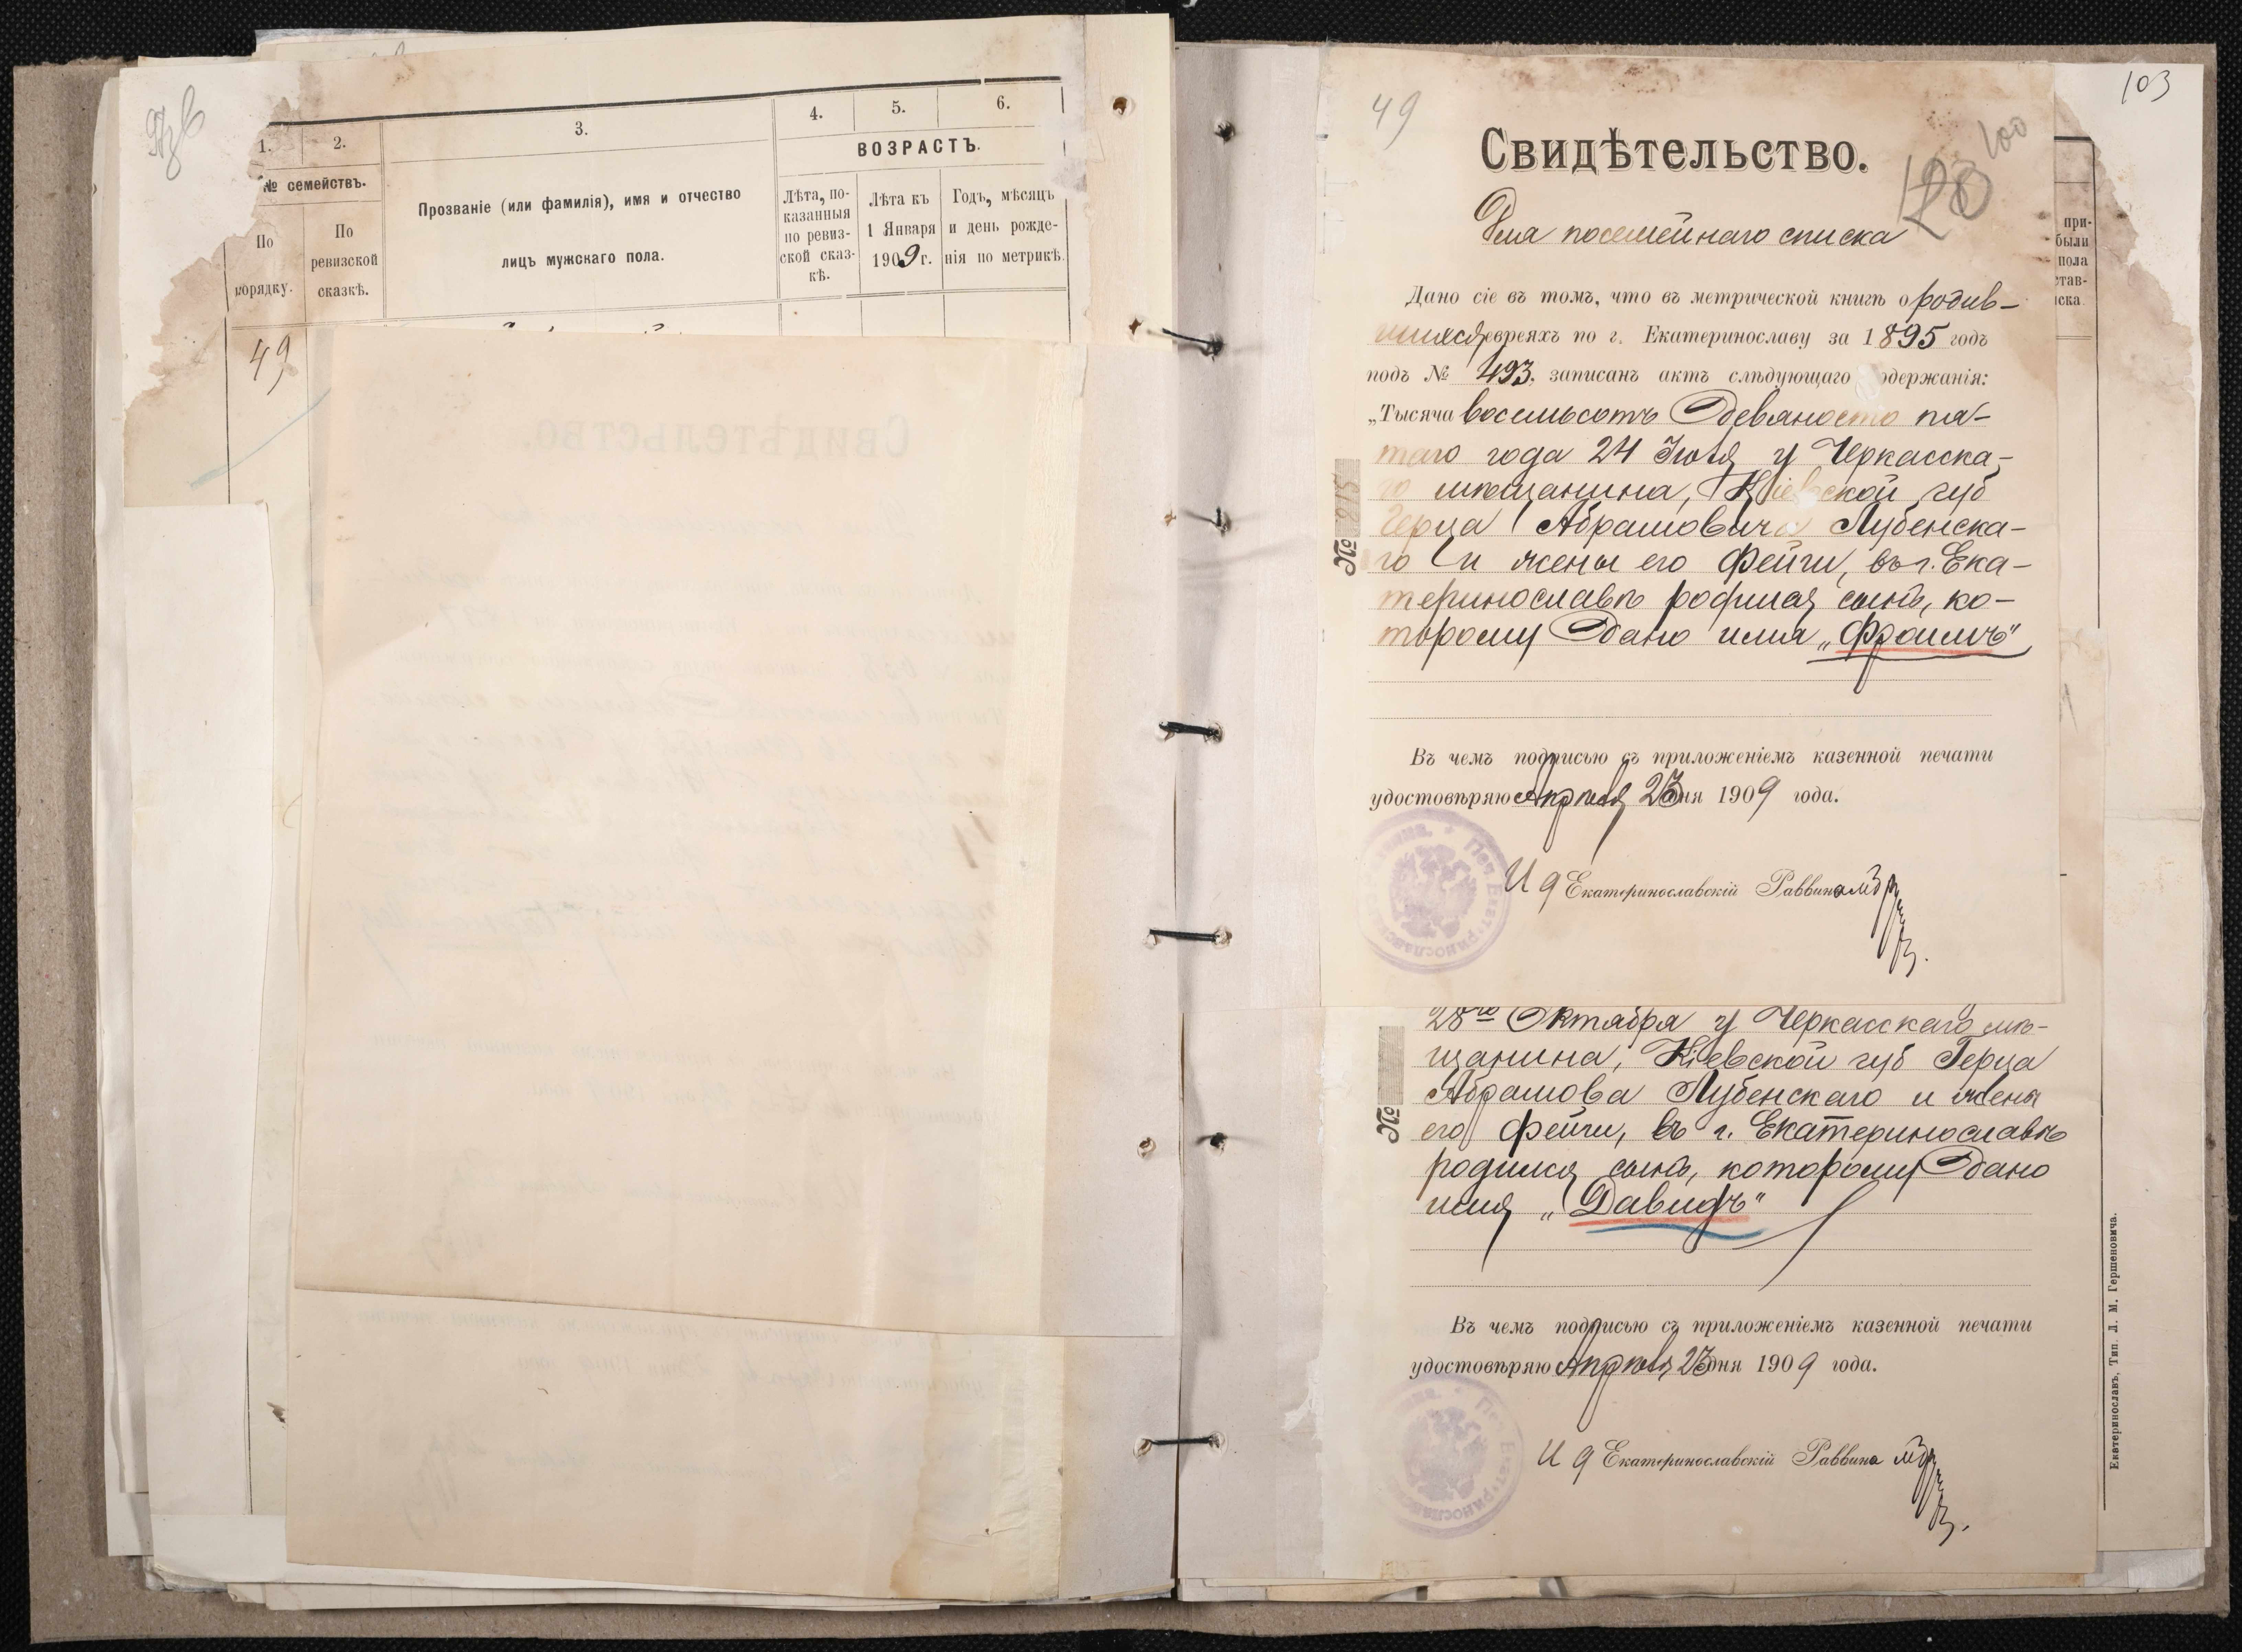 1.
2.
3.
4.
5.
6.
№ семействъ.
ВОЗРАСТЪ.
По порядку.
По ревизской сказкѣ.
Прозваніе (или фамилія), имя и отчество
лицъ мужскаго пола.
Лѣта, по-
казанныя
по ревиз-
ской сказ-
кѣ.
Лѣта къ
1 Января
1909 г.
Годъ, мѣсяцъ
и день рожде-
нія по метрикѣ.
49
103
49
100
Свидѣтельство.
Для посемейнаго списка
Дано сіе въ томъ, что въ метрической книгѣ о родив-
шихся евреяхъ по г. Екатеринославу за 1895 годъ
подъ № 493, записанъ актъ слѣдующаго содержанія:
„Тысяча восемьсотъ девяносто пя-
таго года 24 Іюля у Черкасска-
го мѣщанина, Кіевской губ
Герца Абрамовича Лубенска-
го и жены его Фейги, въ г. Ека-
теринославѣ родился сынъ, ко-
торому дано имя „Фроимъ“
№ 815
Въ чемъ подписью съ приложеніемъ казенной печати
удостовѣряю Апрѣля 23 дня 1909 года.
И д Екатеринославскій Раввина
28го Октября у Черкасскаго мѣ-
щанина, Кіевской губ Герца
Абрамова Лубенскаго и жены
его Фейги, въ г. Екатеринославѣ
родился сынъ, которому дано
имя „Давидъ“
№
Въ чемъ подписью съ приложеніемъ казенной печати
удостовѣряю Апрѣля 23 дня 1909 года.
И д Екатеринославскій Раввина
при-
были
пола
став-
иска
Екатеринославъ, Тип. Л. М. Гершеновича.